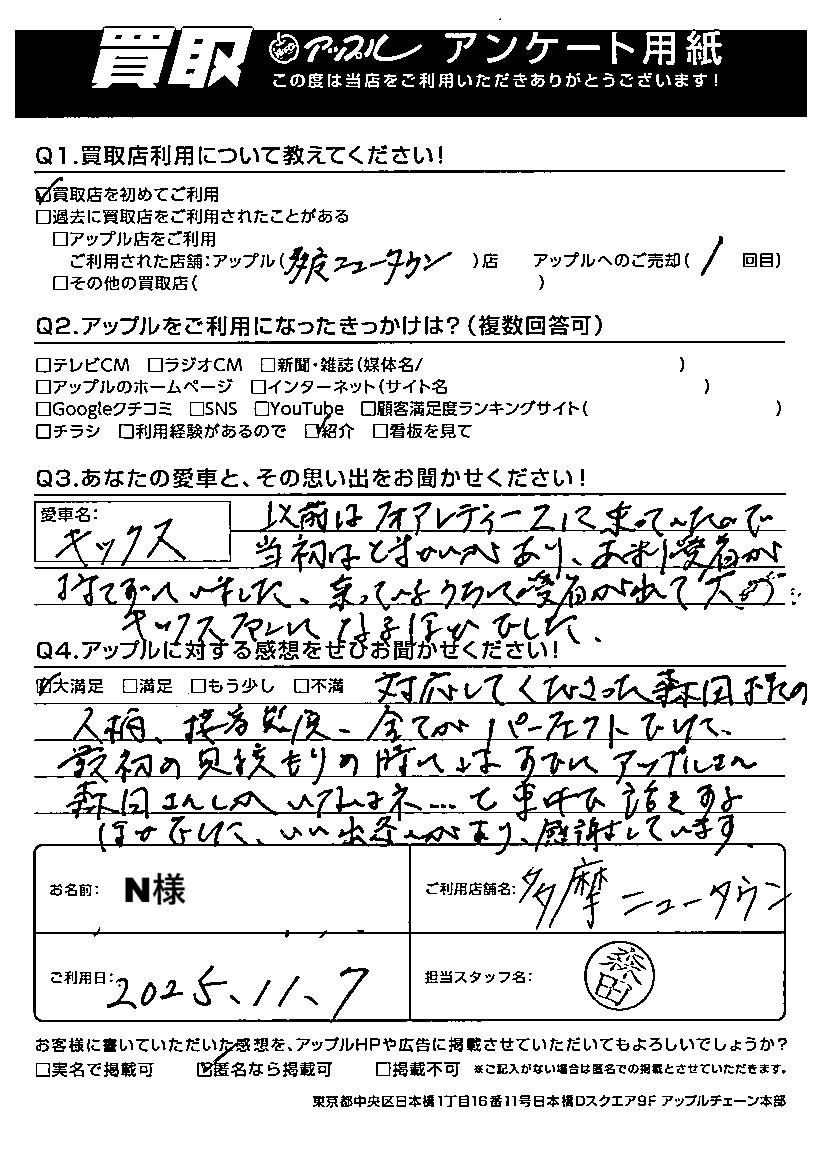 買取 アップル アンケート用紙
この度は当店をご利用いただきありがとうございます!
Q1.買取店利用について教えてください!
☑買取店を初めてご利用
□過去に買取店をご利用されたことがある
□アップル店をご利用
ご利用された店舗:アップル(多摩ニュータウン)店 アップルへのご売却(1回目)
□その他の買取店( )
Q2.アップルをご利用になったきっかけは?(複数回答可)
□テレビCM □ラジオCM □新聞・雑誌(媒体名/ )
□アップルのホームページ □インターネット(サイト名 )
□Googleクチコミ □SNS □YouTube □顧客満足度ランキングサイト( )
□チラシ □利用経験があるので ☑紹介 □看板を見て
Q3.あなたの愛車と、その思い出をお聞かせください!
愛車名:
キックス
以前はフォアレディーズに乗っていたので
当初はとまどいがあり、あまり愛着が
持てずにいました、乗っているうちに愛着が出て大の
キックスファンになるほどでした、
Q4.アップルに対する感想をぜひお聞かせください!
☑大満足 □満足 □もう少し □不満 対応してくださった森田様の
人柄、接客態度、全てがパーフェクトでして、
最初の見積もりの時にはすでにアップルさん
森田さんしかいないよネ…と車中で話をする
ほどでして、いい出会いがあり、感謝しています.
お名前: N様
ご利用店舗名: 多摩ニュータウン
ご利用日: 2025、11、7
担当スタッフ名: 森田
お客様に書いていただいた感想を、アップルHPや広告に掲載させていただいてもよろしいでしょうか?
□実名で掲載可 ☑匿名なら掲載可 □掲載不可 ※ご記入がない場合は匿名での掲載とさせていただきます。
東京都中央区日本橋1丁目16番11号日本橋Dスクエア9F アップルチェーン本部